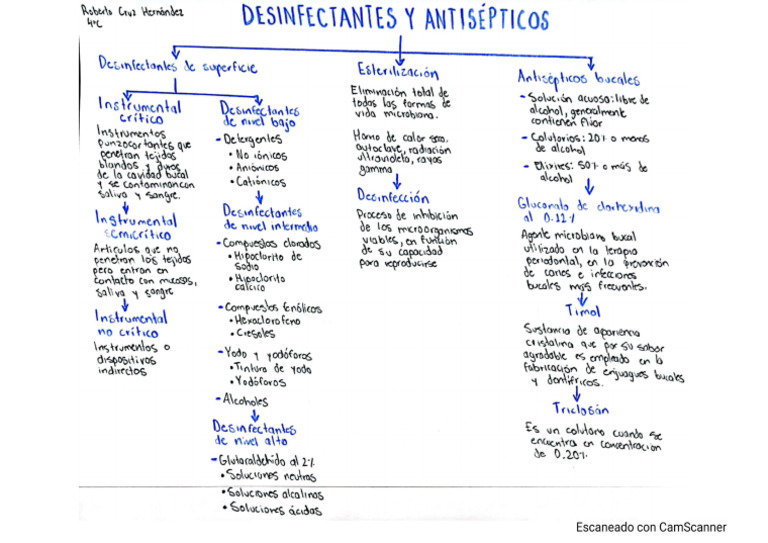 Roberto Cruz Hernández
4°C
DESINFECTANTES Y ANTISÉPTICOS
Desinfectantes de superficie
Instrumental
crítico
Instrumentos
punzocortantes que
penetran tejidos
blandos y duros
de la cavidad bucal
y se contaminan con
saliva y sangre.
Instrumental
semicrítico
Artículos que no
penetran los tejidos
pero entran en
contacto con mucosas,
saliva y sangre
Instrumental
no crítico
Instrumentos o
dispositivos
indirectos
Desinfectantes
de nivel bajo
- Detergentes
• No iónicos
• Aniónicos
• Catiónicos
Desinfectantes
de nivel intermedio
- Compuestos clorados
• Hipoclorito de
sodio
• Hipoclorito
calcico
- Compuestos fenólicos
• Hexaclorofeno
• Cresoles
- Yodo y yodóforos
• Tintura de yodo
• Yodóforos
- Alcoholes
Desinfectantes
de nivel alto
- Glutaraldehido al 2%
• Soluciones neutras
• Soluciones alcalinas
• Soluciones ácidas
Esterilización
Eliminación total de
todas las formas de
vida microbiana.
Horno de calor seco,
autoclave, radiación
ultravioleta, rayos
gamma
Desinfección
Proceso de inhibición
de los microorganismos
viables, en función
de su capacidad
para reproducirse
Antisépticos bucales
- Solución acuosa: libre de
alcohol, generalmente
contienen flúor
- Colutorios: 20% o menos
de alcohol
- Elixires: 50% o más de
alcohol
Gluconato de clorhexidina
al 0.12%
Agente microbiano bucal
utilizado en la terapia
periodontal, en la prevención
de caries e infecciones
bucales más frecuentes.
Timol
Sustancia de apariencia
cristalina que por su sabor
agradable es empleado en la
fabricación de enjuagues bucales
y dentífricos.
Triclosán
Es un colutorio cuando se
encuentra en concentración
de 0.20%
Escaneado con CamScanner